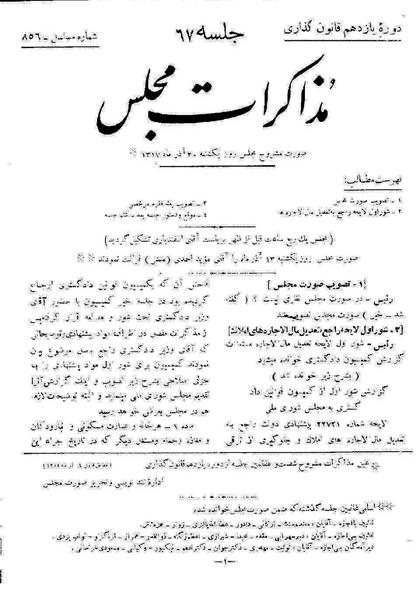 دورهٔ یازدهم قانون گذاری
جلسه ۶۷
شماره مسلسل - ۸۵۶
مذاکرات مجلس
صورت مشروح مجلس روز یکشنبه ۲۰ آذر ماه ۱۳۱۷
فهرست مطالب:
۱ - تصویب صورت مجلس
۲ - شور اول لایحه راجع به تعدیل مال الاجاره ها
۳ - تصویب یک فقره مرخصی
۴ - موقع و دستور جلسه بعد - ختم جلسه
(مجلس یک ربع ساعت قبل از ظهر بریاست آقای اسفندیاری تشکیل گردید)
صورت مجلس روز یکشنبه ۱۳ آذر ماه را آقای مؤید احمدی (منشی) قرائت نمودند
۱ - تصویب صورت مجلس
رئیس - در صورت مجلس نظری نیست ؟ ( گفته
شد - خیر) صورت مجلس تصویب شد
۲ - شور اول لایحه راجع بتعدیل مال الاجاره های املاک
رئیس - شور اول لایحه تعدیل مال الاجاره
گزارش کمیسیون دادگستری خوانده میشود
(بشرح زیر خوانده شد)
گزارش شور اول از کمیسیون قوانین داد
گستری به مجلس شورای ملی
لایحه شماره ۲۲۷۲۱ پیشنهادی دولت راجع به
تعدیل مال الاجاره های املاک و جلوگیری از ترقی
فاحش آن که بکمیسیون قوانین دادگستری ارجاع
گردیده بود در جلسه اخیر کمیسیون با حضور آقای
وزیر دادگستری تحت شور و مداقه قرار گرفت پس
از مذاکرات مفصل در اطراف مواد پیشنهادی و توضیحاتی
که آقای وزیر دادگستری راجع بصل موضوع بیان
نمودند کمیسیون برای شور اول مواد پیشنهادی را با
جزئی اصلاحی بشرح زیر تصویب و اینک گزارش آنرا
تقدیم مجلس شورای ملی مینماید و البته توضیحات لازمه
هم در مجلس بعرض خواهد رسید
ماده ۱ - هر خانه و عمارت مسکونی و انبار و دکان
و مغازه و حمام و مستغل دیگر که در تاریخ اجرای این
عین مذاکرات مشروح شصت و هفتمین جلسه از دوره یازدهم قانون گذاری
اداره تند نویسی و تحریر صورت مجلس
اسامی غائبین جلسه گذشته که ضمن صورت مجلس خوانده شده
- ۱ -